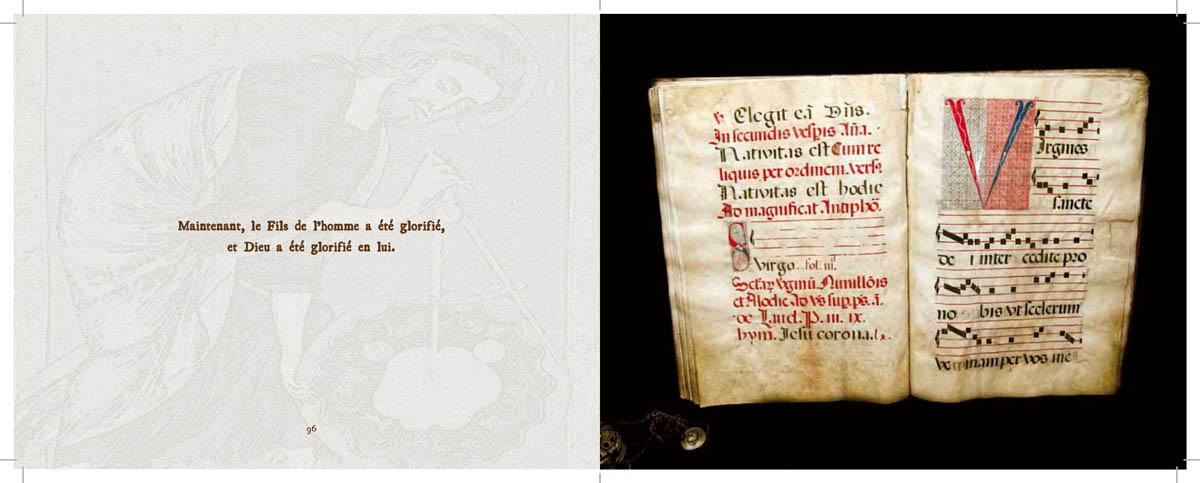 Maintenant, le Fils de l'homme a été glorifié,
et Dieu a été glorifié en lui.
96
℣ Elegit eā Dn̄s.
In secundis vespis An̄a.
Nativitas est Cum re
liquis per ordinem. Versꝰ.
Nativitas est hodie
Ad magnificat Antiphō.
S
Virgo. fol. iii.
et Alodie
bym. Iesu corona. lx.
V
irgines
sancte
de i inter cedite pro
no bis vt scelerum
ve niam per vos me